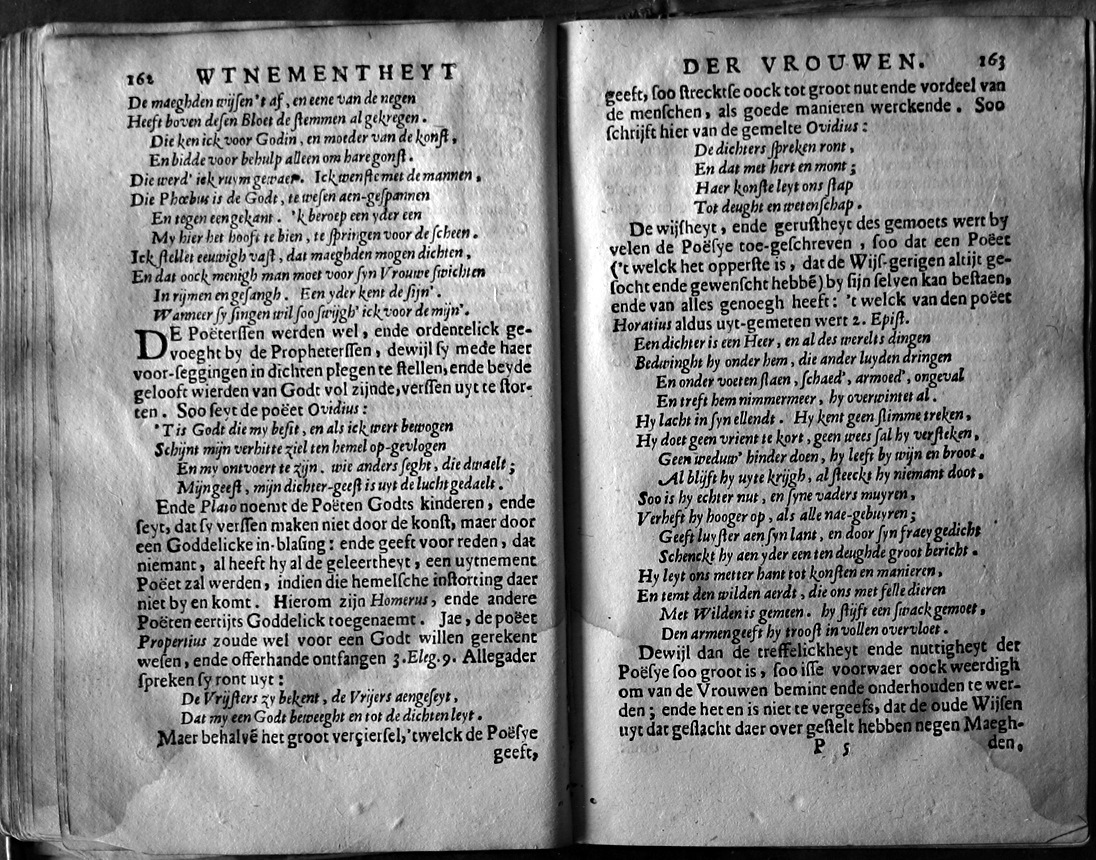 162 WTNEMENTHEYT
De maeghden wijſen 't af, en eene van de negen
Heeft boven deſen Bloet de ſtemmen al gekregen.
Die ken ick voor Godin, en moeder van de konſt,
En bidde voor behulp alleen om hare gonſt.
Die werd' ick ruym gewaer. Ick wenſte met de mannen,
Die Phœbus is de Godt, te weſen aen-geſpannen
En tegen een gekant. 'k beroep een yder een
My hier het hooft te bien, te ſpringen voor de ſcheen.
Ick ſtellet eeuwigh vaſt, dat maeghden mogen dichten,
En dat oock menigh man moet voor ſyn Vrouwe ſwichten
In rijmen en geſangh. Een yder kent de ſijn'.
Wanneer ſy ſingen wil ſoo ſwijgh' ick voor de mijn'.
DE Poëterſſen werden wel, ende ordentelick ge-
voeght by de Propheterſſen, dewijl ſy mede haer
voor-ſeggingen in dichten plegen te ſtellen, ende beyde
gelooft wierden van Godt vol zijnde, verſſen uyt te ſtor-
ten. Soo ſeyt de poëet Ovidius:
'T is Godt die my beſit, en als ick wert bewogen
Schijnt mijn verhitte ziel ten hemel op-gevlogen
En my ontvoert te zijn. wie anders ſeght, die dwaelt;
Mijn geeſt, mijn dichter-geeſt is uyt de lucht gedaelt.
Ende Plato noemt de Poëten Godts kinderen, ende
ſeyt, dat ſy verſſen maken niet door de konſt, maer door
een Goddelicke in-blaſing: ende geeft voor reden, dat
niemant, al heeft hy al de geleertheyt, een uytnement
Poëet zal werden, indien die hemelſche inſtorting daer
niet by en komt. Hierom zijn Homerus, ende andere
Poëten eertijts Goddelick toegenaemt. Jae, de poëet
Propertius zoude wel voor een Godt willen gerekent
weſen, ende offerhande ontfangen 3. Eleg. 9. Allegader
ſpreken ſy ront uyt:
De Vrijſters zy bekent, de Vrijers aengeſeyt,
Dat my een Godt beweeght en tot de dichten leyt.
Maer behalvē het groot verçierſel, 'twelck de Poëſye
geeft,
DER VROUWEN. 163
geeft, ſoo ſtrecktſe oock tot groot nut ende vordeel van
de menſchen, als goede manieren werckende. Soo
ſchrijft hier van de gemelte Ovidius:
De dichters ſpreken ront,
En dat met hert en mont;
Haer konſte leyt ons ſtap
Tot deught en wetenſchap.
De wijſheyt, ende geruſtheyt des gemoets wert by
velen de Poëſye toe-geſchreven, ſoo dat een Poëet
('t welck het opperſte is, dat de Wijſ-gerigen altijt ge-
ſocht ende gewenſcht hebbē) by ſijn ſelven kan beſtaen,
ende van alles genoegh heeft: 't welck van den poëet
Horatius aldus uyt-gemeten wert 2. Epiſt.
Een dichter is een Heer, en al des werelts dingen
Bedwinght hy onder hem, die ander luyden dringen
En onder voeten ſlaen, ſchaed', armoed', ongeval
En treft hem nimmermeer, hy overwintet al.
Hy lacht in ſyn ellendt. Hy kent geen ſlimme treken,
Hy doet geen vrient te kort, geen wees ſal hy verſteken,
Geen weduw' hinder doen, hy leeft by wijn en broot.
Al blijft hy uyte krijgh, al ſteeckt hy niemant doot,
Soo is hy echter nut, en ſyne vaders muyren,
Verheft hy hooger op, als alle nae-gebuyren;
Geeft luyſter aen ſyn lant, en door ſyn fraey gedicht
Schenckt hy aen yder een ten deughde groot bericht.
Hy leyt ons metter hant tot konſten en manieren,
En temt den wilden aerdt, die ons met felle dieren
Met Wilden is gemeen. hy ſtijft een ſwack gemoet,
Den armen geeft hy trooſt in vollen overvloet.
Dewijl dan de treffelickheyt ende nuttigheyt der
Poëſye ſoo groot is, ſoo iſſe voorwaer oock weerdigh
om van de Vrouwen bemint ende onderhouden te wer-
den; ende het en is niet te vergeefs, dat de oude Wijſen
uyt dat geſlacht daer over geſtelt hebben negen Maegh-
P 5 den,